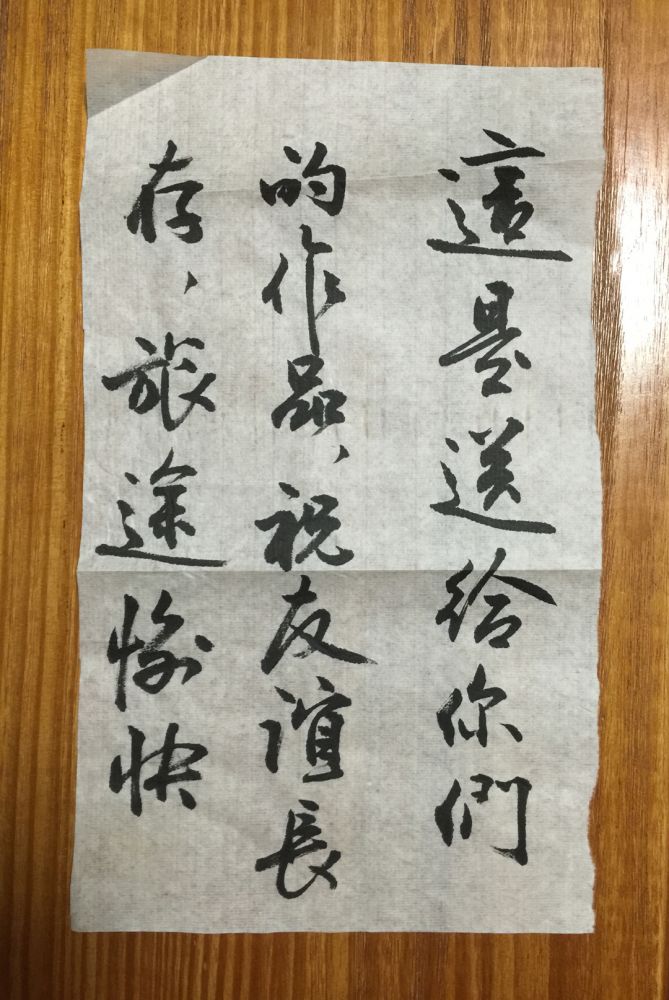 這是送給你們
的作品、祝友誼長
存、旅途愉快